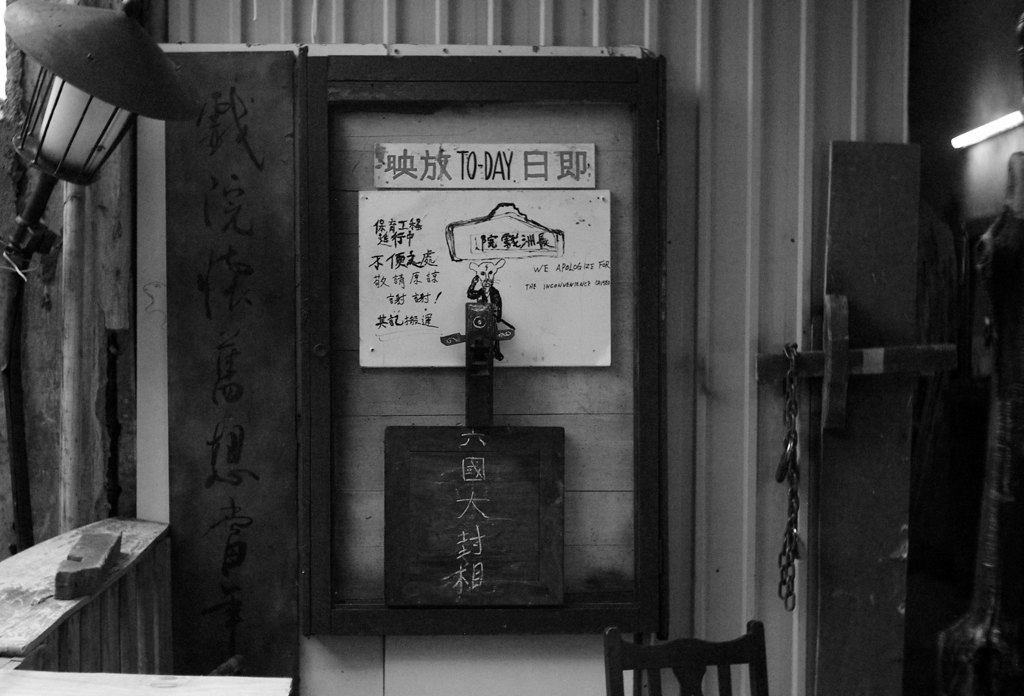 戲院懷舊想當年
映放 TO-DAY 日即
保育工程
進行中
不便之處
敬請原諒
謝謝!
其記搬運
院戲洲長
WE APOLOGIZE FOR
THE INCONVENIENCE CAUSED
六國大封相